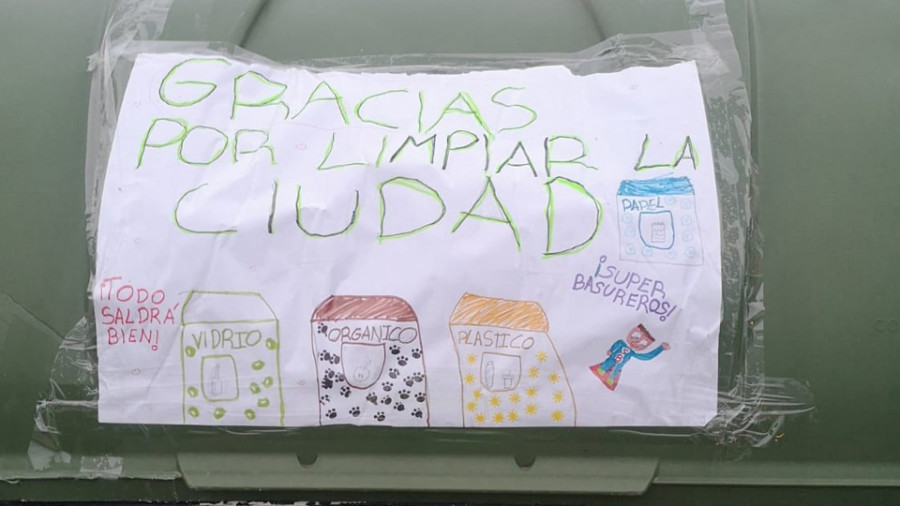 GRACIAS
POR LIMPIAR LA
CIUDAD
PAPEL
¡SUPER
BASUREROS!
¡TODO
SALDRÁ
BIEN!
VIDRIO
ORGANICO
PLASTICO